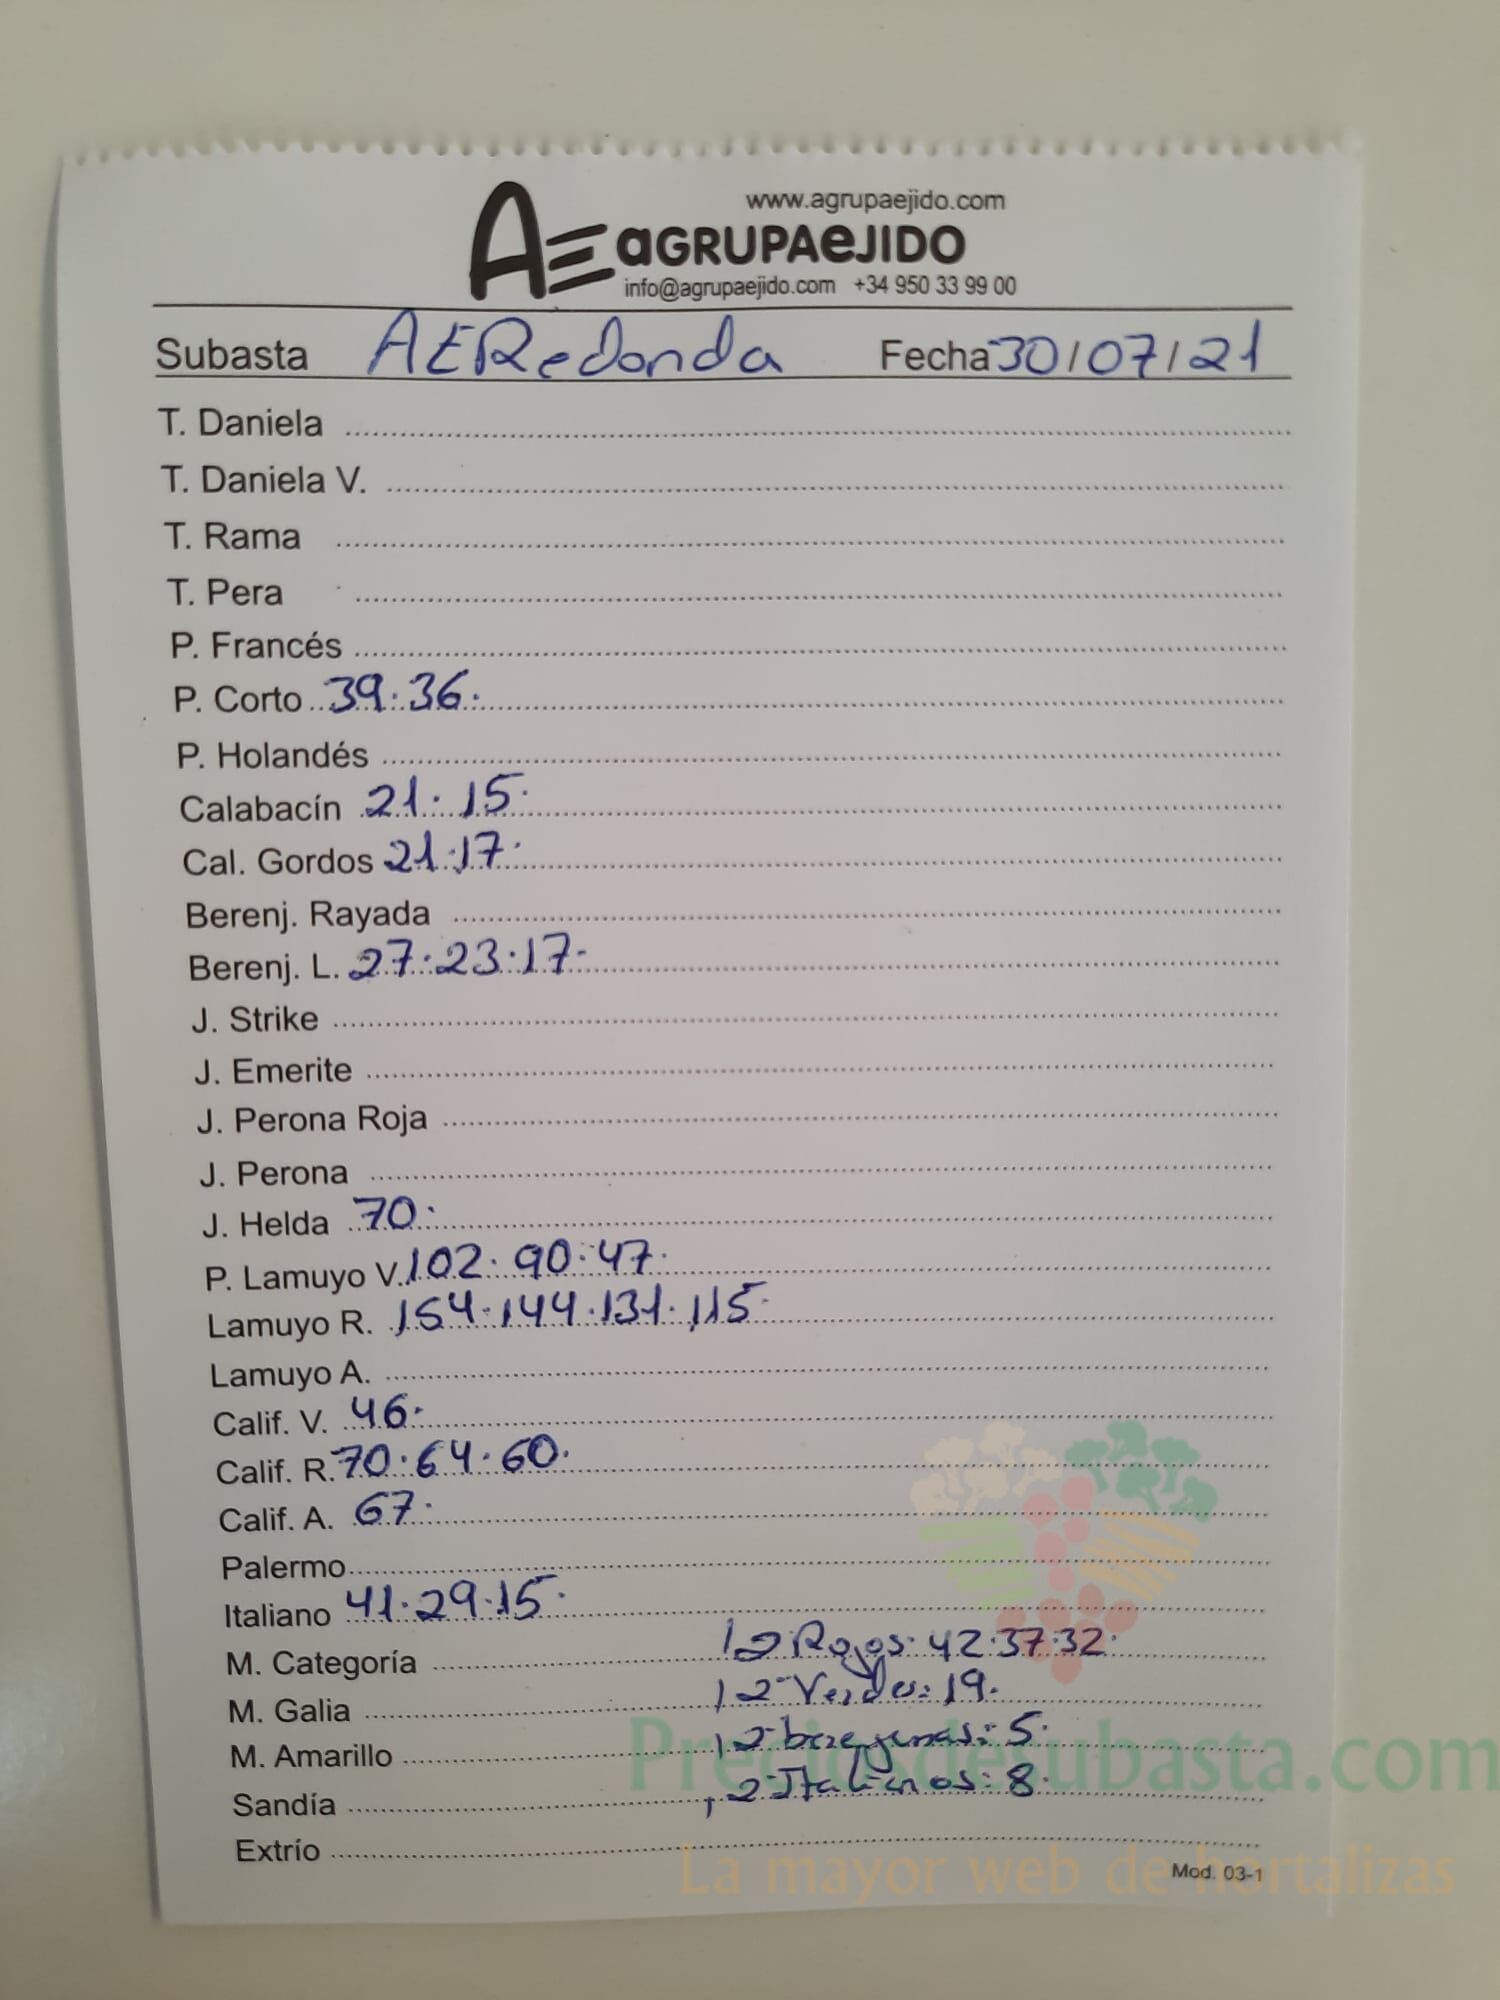 www.agrupaejido.com
AE aGRUPAeJIDO
info@agrupaejido.com +34 950 33 99 00
Subasta AERedonda Fecha 30/07/21
T. Daniela
T. Daniela V.
T. Rama
T. Pera
P. Francés
P. Corto 39.36.
P. Holandés
Calabacín 21.15.
Cal. Gordos 21.17.
Berenj. Rayada
Berenj. L. 27.23.17.
J. Strike
J. Emerite
J. Perona Roja
J. Perona
J. Helda 70.
P. Lamuyo V. 102.90.47.
Lamuyo R. 154.144.131.115.
Lamuyo A.
Calif. V. 46.
Calif. R. 70.64.60.
Calif. A. 67.
Palermo
Italiano 41.29.15.
M. Categoría 12 Rojos: 42.37.32.
M. Galia 12 Verdes: 19.
M. Amarillo 12 berenjenas: 5.
Sandía 12 Italianos: 8.
Extrío
Mod. 03-1
Preciosdesubasta.com
La mayor web de hortalizas